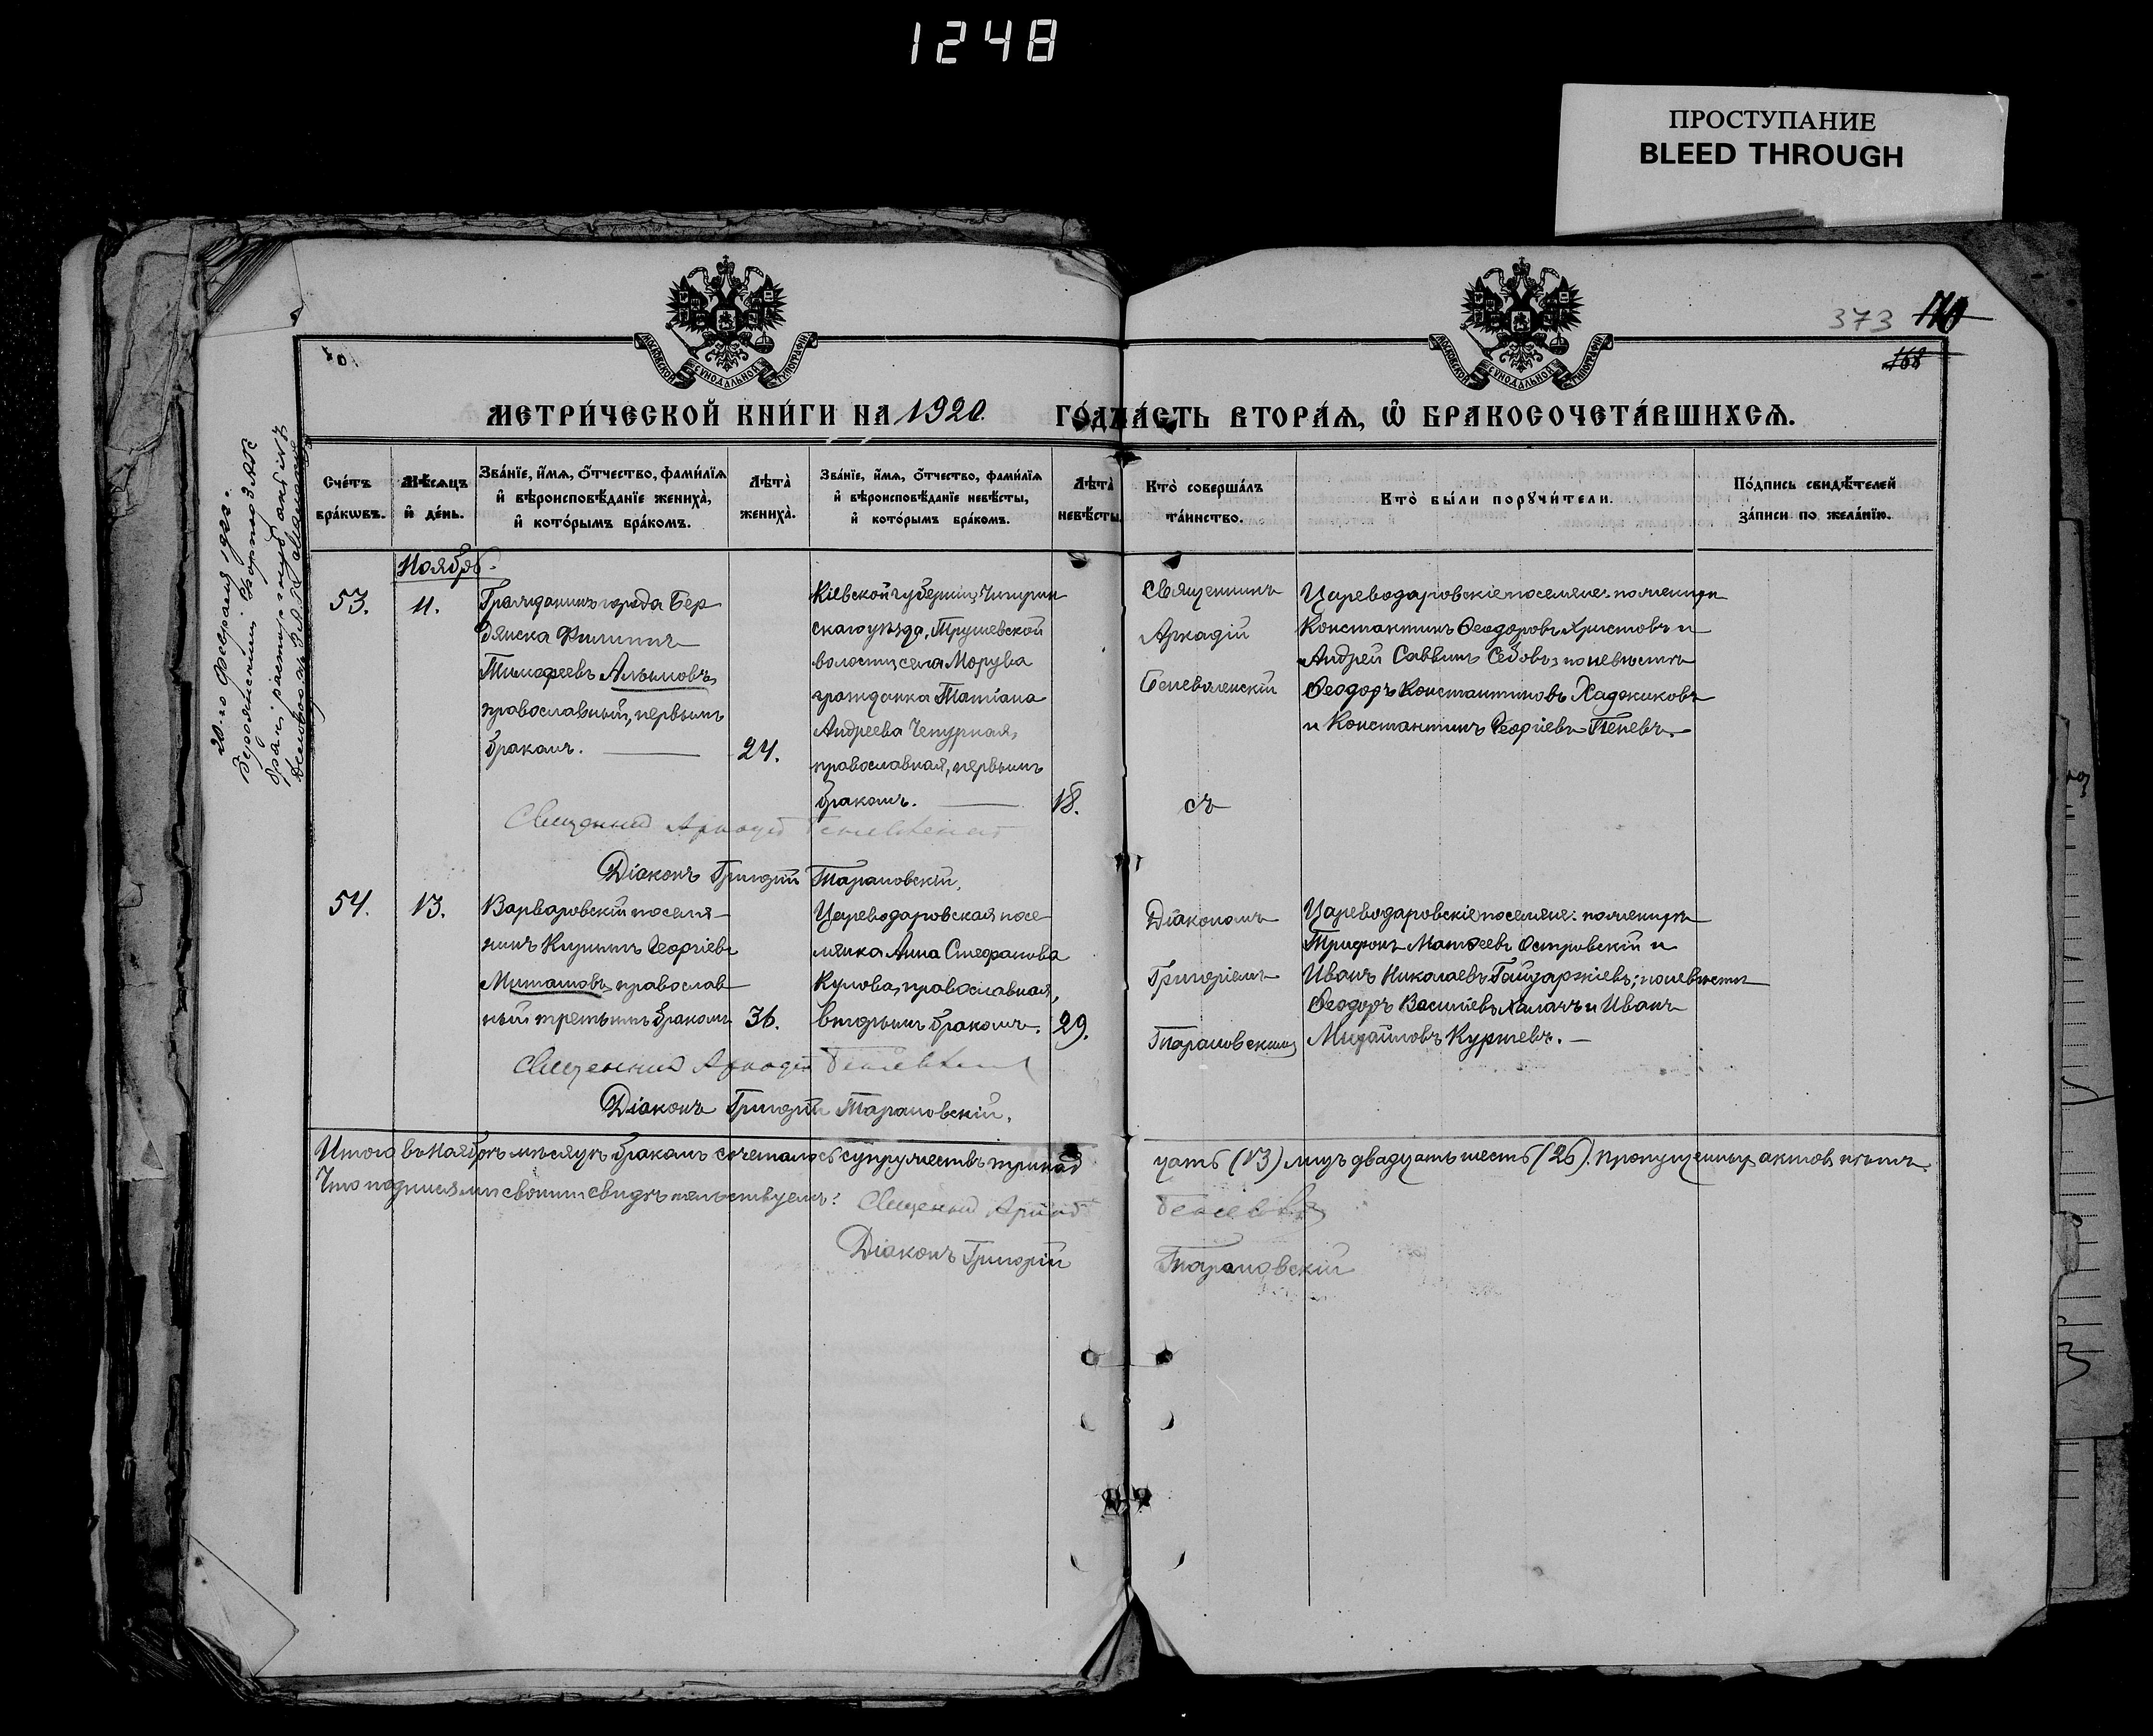 1248
ПРОСТУПАНИЕ
BLEED THROUGH
373 170
168
МОСКОВСКОЙ СУНОДАЛЬНОЙ ТИПОГРАФІИ
МОСКОВСКОЙ СУНОДАЛЬНОЙ ТИПОГРАФІИ
МЕТРИ́ЧЕСКОЙ КНИ́ГИ НА 1920. ГО́ДЪ ЧА́СТЬ ВТОРА́Ѧ, Ѡ҆ БРАКОСОЧЕТА́ВШИХСѦ.
Сче́тъ
бра́кѡвъ.
Мѣ́сѧцъ
и҆ де́нь.
Зва́нїе, и҆́мѧ, ѻ҆́тчество, фами́лїѧ
и҆ вѣроисповѣ́данїе жениха̀,
и҆ кото́рымъ бра́комъ.
Лѣта̀
жениха̀.
Зва́нїе, и҆́мѧ, ѻ҆́тчество, фами́лїѧ
и҆ вѣроисповѣ́данїе невѣ́сты,
и҆ кото́рымъ бра́комъ.
Лѣта̀
невѣ́сты.
Кто̀ соверша́лъ
та́инство.
Кто̀ бы́ли порꙋчи́тели.
По́дпись свидѣ́телей
за́писи по жела́нїю.
20-го Февраля 1923 г.
Ноябрь.
53.
11.
Гражданинъ города Бер
дянска Филиппъ
Тимофеевъ Альимовъ,
православный, первымъ
бракомъ.
24.
Кіевской губерніи, Чигирин
скаго уѣзда, Трушевской
волости, села
гражданка Татіана
Андреева Чепурная,
православная, первымъ
бракомъ.
18.
Священникъ
Аркадій
Беневоленскій
съ
Цареводаровскіе поселяне: по женихѣ
Константинъ Ѳеодоровъ Христовъ и
Андрей Саввинъ Седовъ; по невѣстѣ
Ѳеодоръ Константиновъ Хаджиковъ
и Константинъ Георгіевъ Пеневъ.
Священникъ Аркадій
Діаконъ Григорій Тарановскій.
54.
13.
Варваровскій поселя
нинъ Георгіевъ
Миташовъ, православ
ный третьимъ бракомъ
36.
Цареводаровская посе
лянка Анна Стефанова
Кулова, православная,
вторымъ бракомъ.
29.
Діакономъ
Григоріемъ
Тарановскимъ
Цареводаровскіе поселяне: по женихѣ
Трифонъ Матѳеевъ Островскій и
Иванъ Николаевъ Гайдаржіевъ; по невѣстѣ
Ѳеодоръ Василіевъ Халачъ и Иванъ
Михайловъ Куртевъ.
Священникъ Аркадій
Діаконъ Григорій Тарановскій.
Итого въ Ноябрѣ мѣсяцѣ бракомъ сочеталось супружествъ тринад
цать (13) лицъ двадцать шесть (26). Пропущенныхъ актовъ нѣтъ.
Что подписями своими свидѣтельствуемъ: Священникъ Аркадій
Діаконъ Григорій Тарановскій